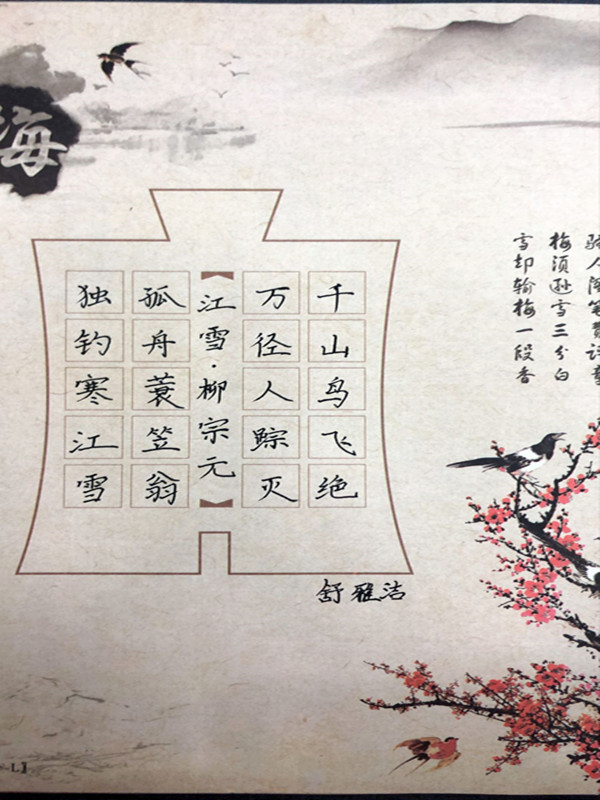 梅须逊雪三分白
雪却输梅一段香
千山鸟飞绝
万径人踪灭
江雪·柳宗元
孤舟蓑笠翁
独钓寒江雪
舒雅洁
海
-L】